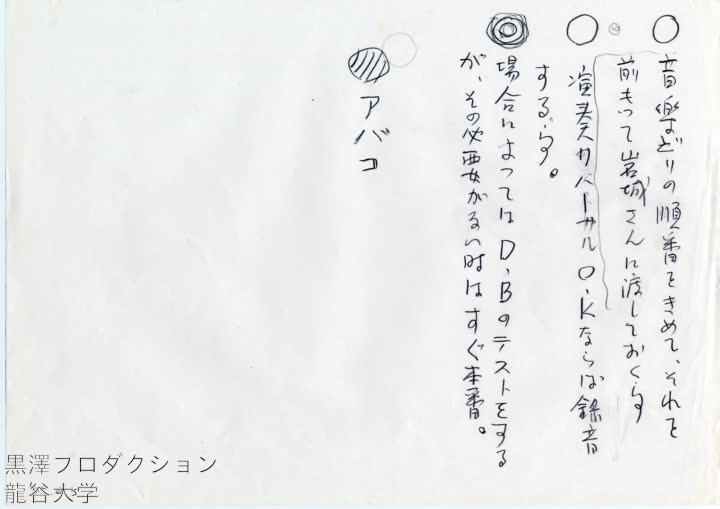 音楽どりの順番をきめて、それを
前もって岩城さんに渡しておく事
演奏がバトカル O.Kならば録音
する事。
場合によっては D.Bのテストをする
が、その必要がない時はすぐ本番。
アバコ
黒澤プロダクション
龍谷大学